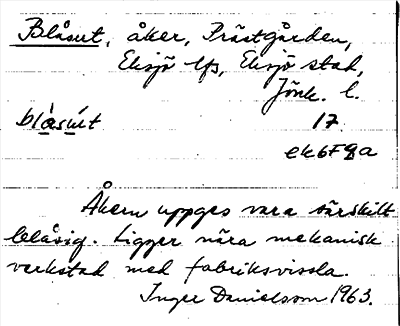 Blåsut, åker, Prästgården,
Eksjö lfs, Eksjö stad,
Jönk. l.
blàsút 17.
ek6F8a
Åkern uppges vara särskilt
blåsig. Ligger nära mekanisk
verkstad med fabriksvissla.
Inger Danielsson 1963.